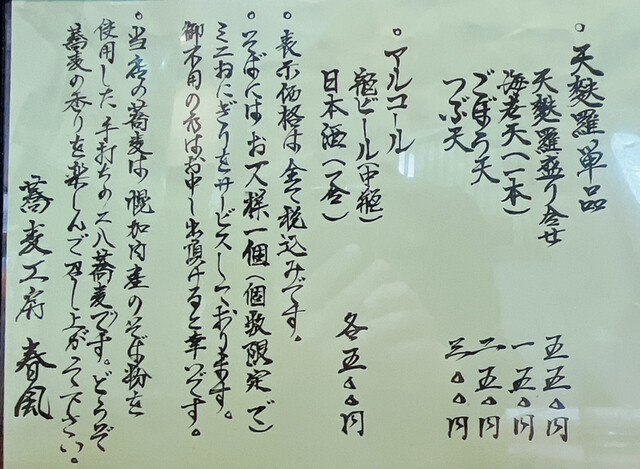 。天麩羅単品
天麩羅盛り合せ 五五〇円
海老天(一本) 一五〇円
ごぼう天 二五〇円
つぶ天 三〇〇円
。アルコール
瓶ビール(中瓶)
日本酒(一合) 各五〇〇円
。表示価格は全て税込みです。
。そばにはお一人様一個(個数限定で)
ミニおにぎりをサービスしております。
御不用の方はお申し出頂けると幸いです。
。当店の蕎麦は幌加内産のそば粉を
使用した手打ちの二八蕎麦です。どうぞ
蕎麦の香りを楽しんで召し上がって下さい。
蕎麦工房 春風